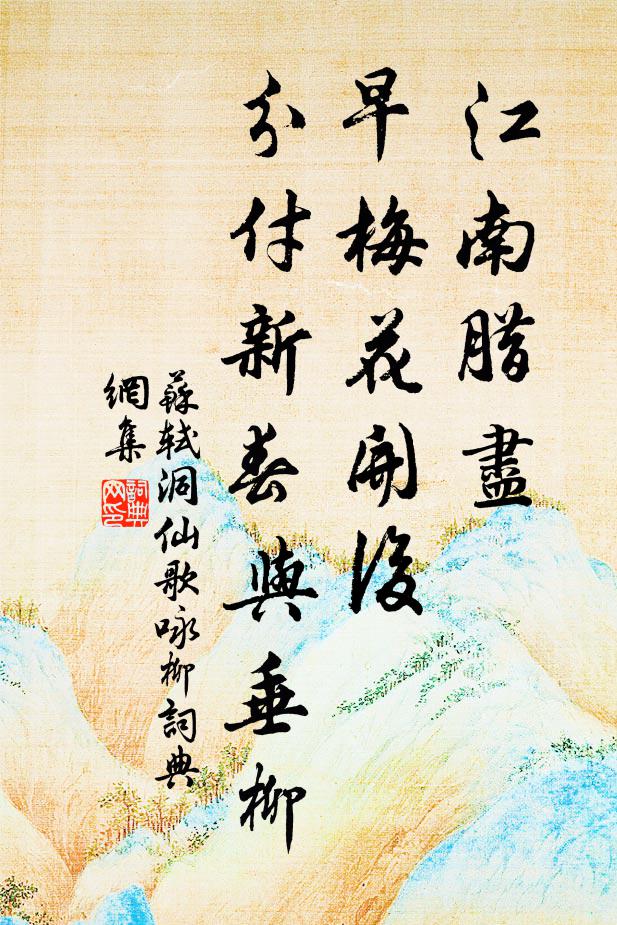 江南腊盡
早梅花開後
分付新春與垂柳
蘇軾洞仙歌咏柳詞典
網集
詞典
网印